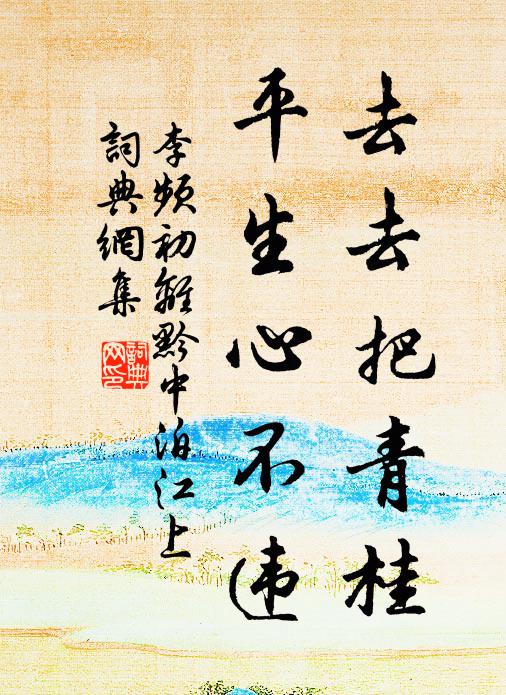 去去把青桂
平生心不违
李频初離黔中泊江上
詞典網集
詞典網印